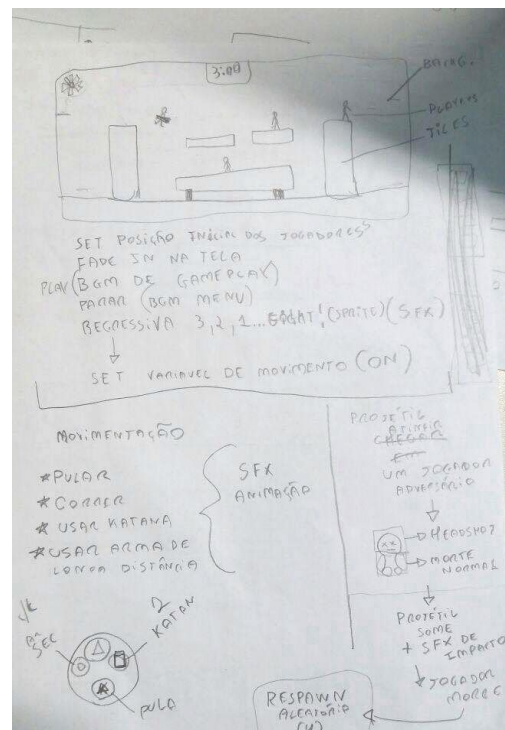 3:00
BACKG.
PLAYERS
TILES
SET POSIÇÃO INICIAL DOS JOGADORES
FADE IN NA TELA
PLAY (BGM DE GAMEPLAY)
PARAR (BGM MENU)
REGRESSIVA 3, 2, 1... ! (SPRITE) (SFX)
SET VARIAVEL DE MOVIMENTO (ON)
MOVIMENTAÇÃO
* PULAR
* CORRER
* USAR KATANA
* USAR ARMA DE
LONGA DISTÂNCIA
SFX
ANIMAÇÃO
PROJÉTIL
ATINGIR
CHEGAR
UM JOGADOR
ADVERSÁRIO
HEADSHOT
MORTE
NORMAL
PROJÉTIL
SOME
+ SFX DE
IMPACTO
JOGADOR
MORRE
RESPAWN
ALEATÓRIO
(4)
SEC
KATAN
PULA